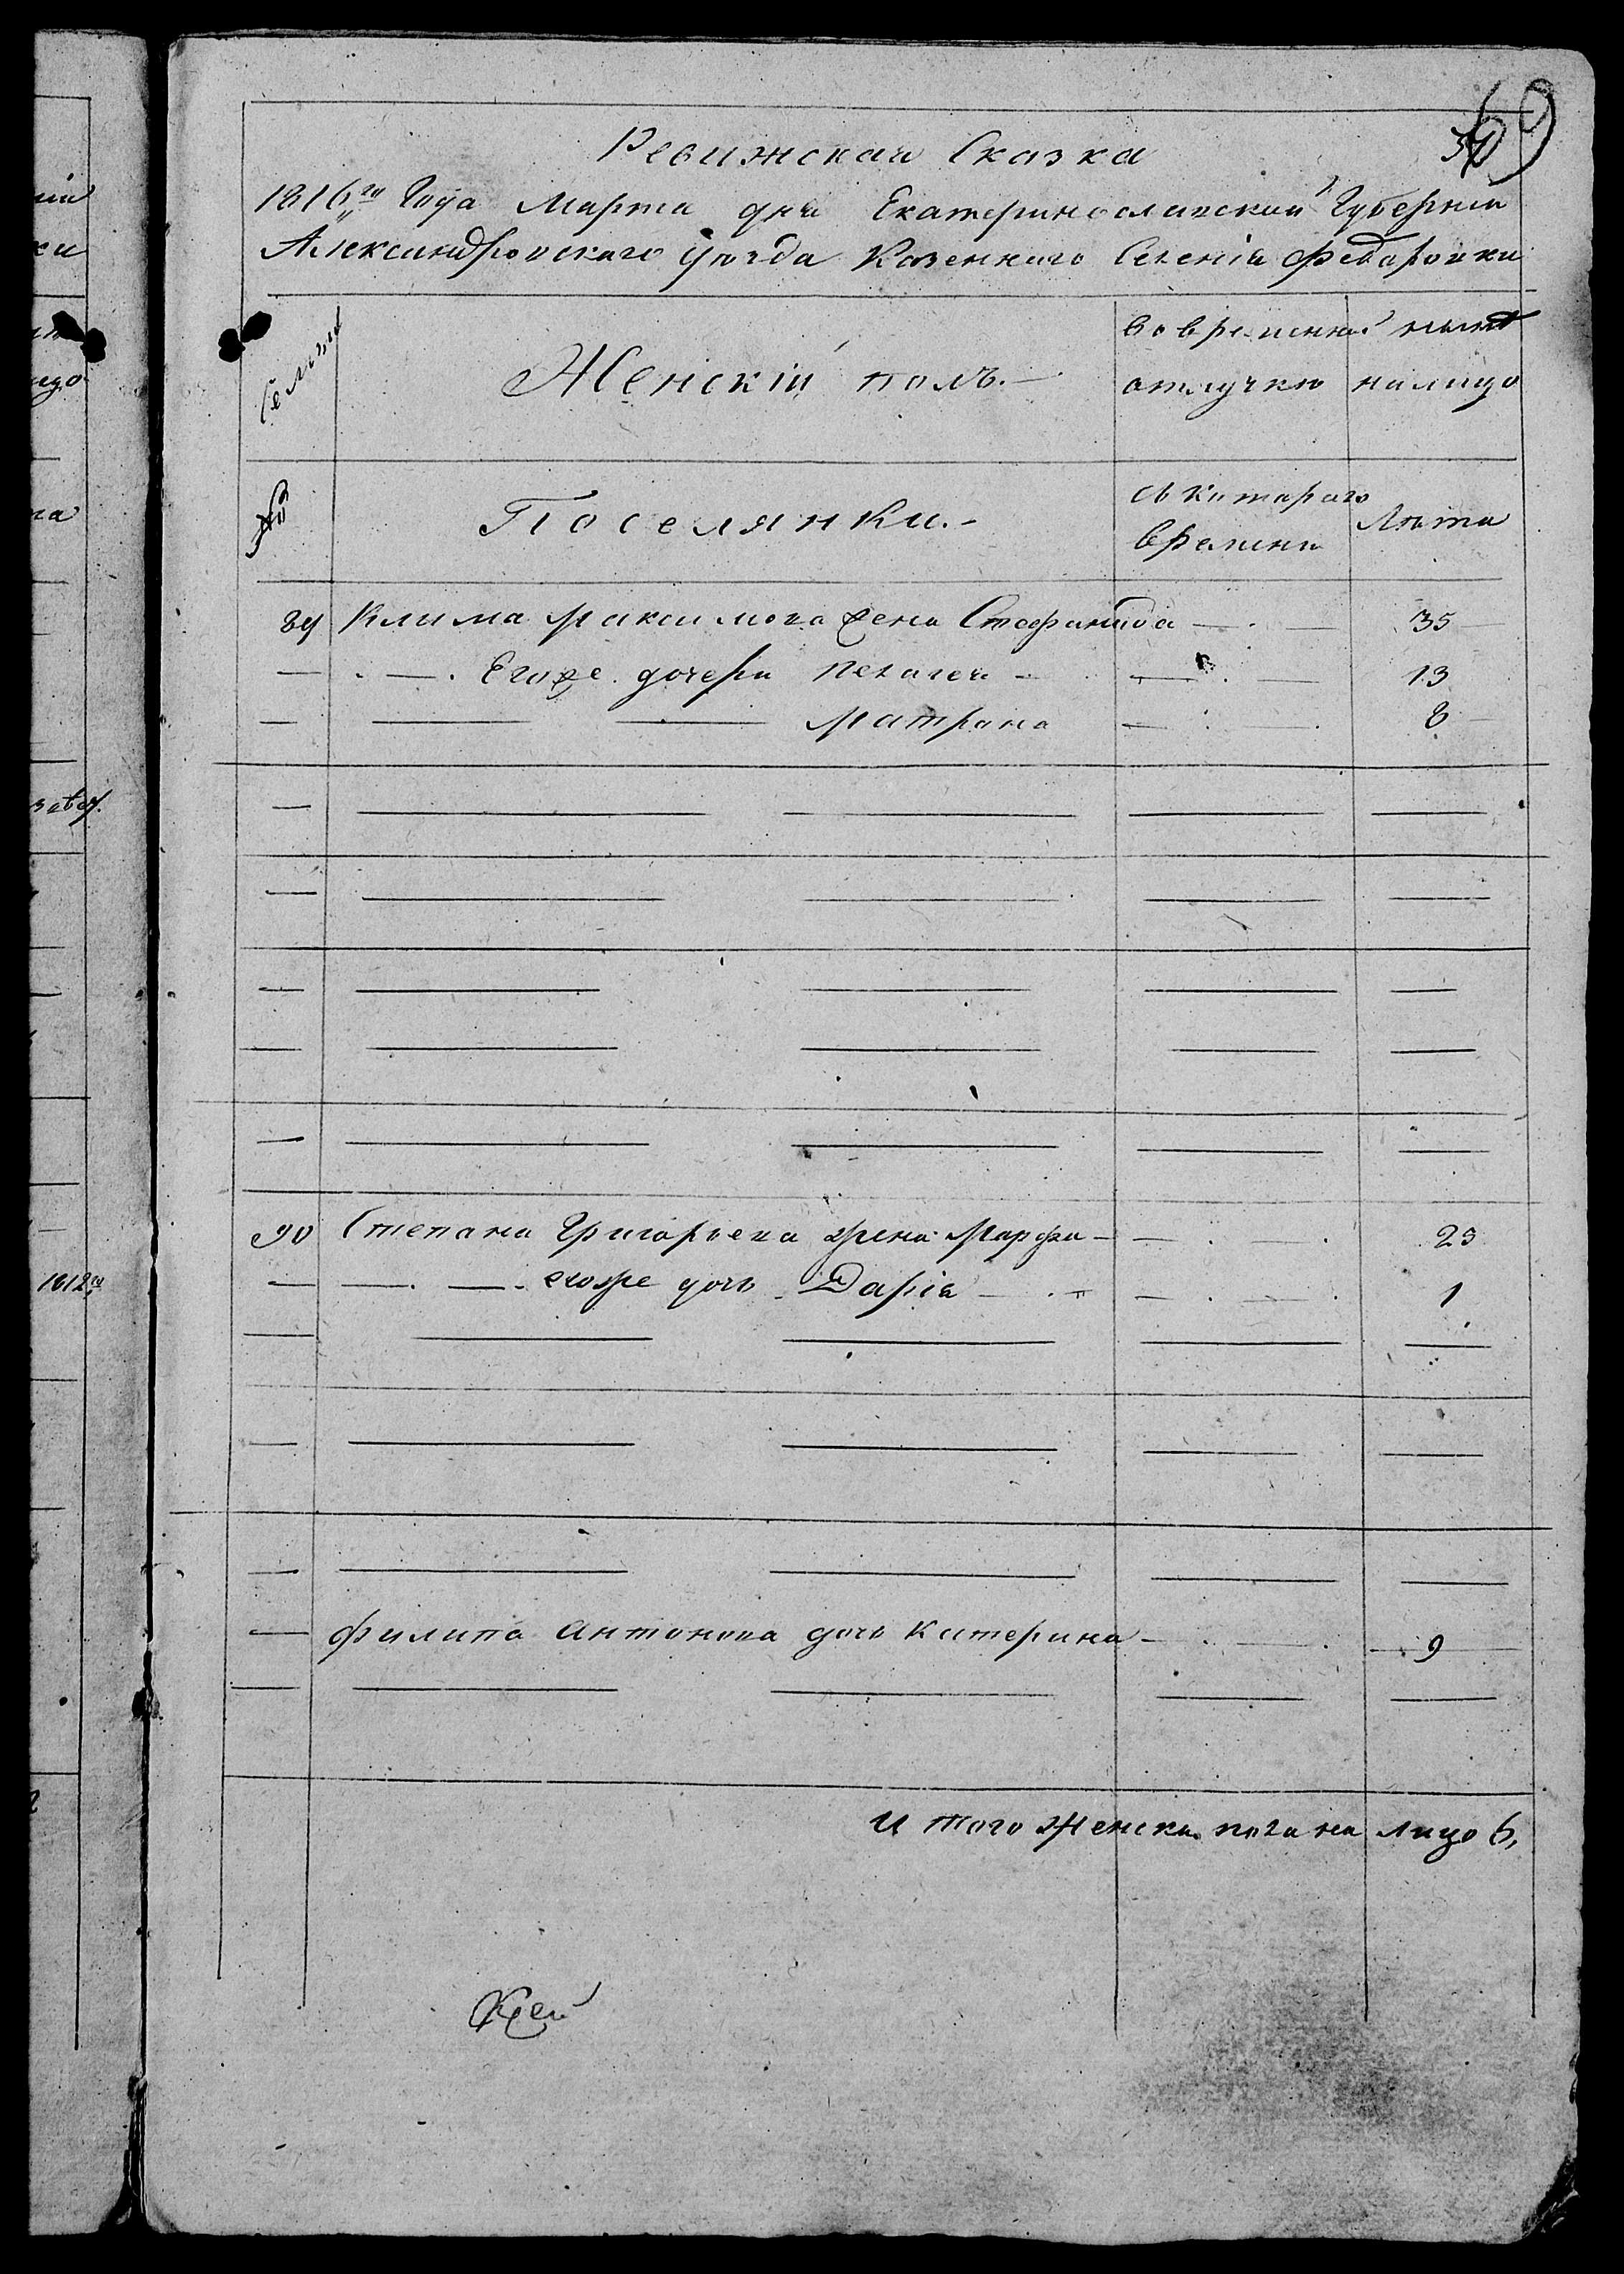 Ревижская Сказка
1816го Года Марта дня Екатеринославской Губерніи
Александровского уѣзда Казенного Селенія Федаровки
Семьи
Женскій полъ.
во временной отлучкѣ
ныне налицо
№
Поселянки.
съ котораго времени
Лѣта
89 Клима Максимова жена Стефанида 35
Егоже дочери Пелагея 13
Матрона 8
90 Степана Григорьева жена Марфа 23
егоже дочь Дарія 1
Филипа Антонова дочь Катерина 9
И того женска пола на лицо 6,
1812го